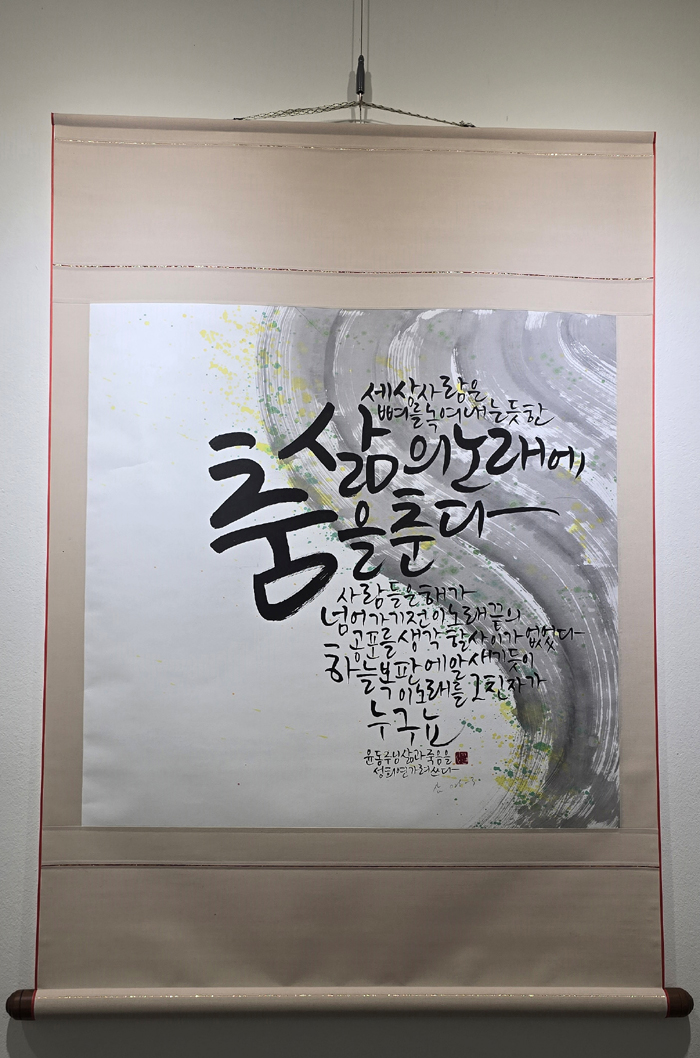 세상사람은
뼈를녹여내는듯한
삶의노래에
춤을춘다
사람들은해가
넘어가기전이노래끝의
공포를생각할사이가없었다
하늘복판에알새기듯이
이노래를그친자가
누구뇨
윤동주님삶과죽음을
가려쓰다